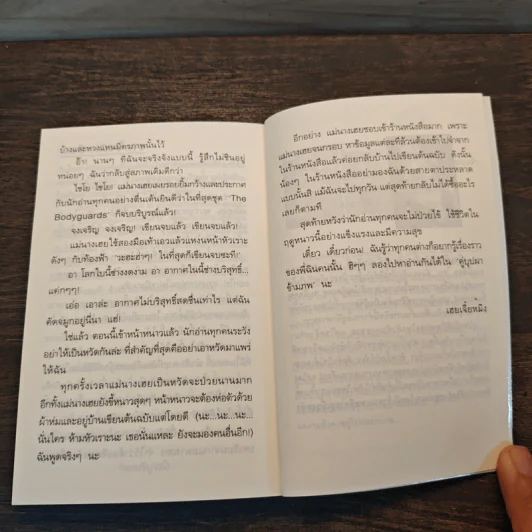 บ้างและหวงแหนมิตรภาพนั้นไว้
อ๊า! นานๆ ทีฉันจะจริงจังแบบนี้ รู้สึกไม่ชินอยู่
หน่อยๆ ฉันว่ากลับสู่สภาพเดิมดีกว่า
ไชโย ไชโย! แม่นางเฮยเผยรอยยิ้มกว้างและประกาศ
กับนักอ่านทุกคนอย่างตื่นเต้นยินดีว่าในที่สุดชุด "The
Bodyguards" ก็จบบริบูรณ์แล้ว!
จงเจริญ จงเจริญ! เขียนจบแล้ว เขียนจบแล้ว!
แม่นางเฮยใช้สองมือเท้าเอวแล้วแหงนหน้าหัวเราะ
ดังๆ กับท้องฟ้า 'วะฮะฮ่าๆ! ในที่สุดก็เขียนจบซะที!'
อา โลกใบนี้ช่างงดงาม อา อากาศในนี้ช่างบริสุทธิ์...
แค่กๆๆ!
เอ่อ เอาล่ะ อากาศไม่บริสุทธิ์สดชื่นเท่าไร แต่ฉัน
คัดจมูกอยู่นี่นา แฮ่!
ใช่แล้ว ตอนนี้เข้าหน้าหนาวแล้ว นักอ่านทุกคนระวัง
อย่าให้เป็นหวัดกันล่ะ ที่สำคัญที่สุดคืออย่าเอาหวัดมาแพร่
ให้ฉัน
ทุกครั้งเวลาแม่นางเฮยเป็นหวัดจะป่วยนานมาก
อีกทั้งแม่นางเฮยยังขี้หนาวสุดๆ หน้าหนาวจะต้องห่อตัวด้วย
ผ้าห่มและอยู่บ้านเขียนต้นฉบับแต่โดยดี (นะ...นะ...นะ...
นั่นใคร ห้ามหัวเราะนะ เธอนั่นแหละ ยังจะมองคนอื่นอีก!)
ฉันพูดจริงๆ นะ
อีกอย่าง แม่นางเฮยชอบเช่าร้านหนังสือมาก เพราะ
แม่นางเฮยจนกรอบ หาข้อมูลแต่ละทีล้วนต้องเข้าไปจำจาก
ในร้านหนังสือแล้วค่อยกลับบ้านไปเขียนต้นฉบับ ดังนั้น
น้องๆ ในร้านหนังสืออย่ามองฉันด้วยสายตาประหลาด
แบบนั้นสิ แม้ฉันจะไปทุกวัน แต่สุดท้ายกลับไม่ได้ซื้ออะไร
เลยก็ตามที
สุดท้ายหวังว่านักอ่านทุกคนจะไม่ป่วยไข้ ใช้ชีวิตใน
ฤดูหนาวนี้อย่างแข็งแรงและมีความสุข
เดี๋ยว เดี๋ยวก่อน! ฉันรู้ว่าทุกคนต่างก็อยากรู้เรื่องราว
ของพี่ฉินคนนั้น ฮิๆๆ ลองไปหาอ่านกันได้ใน 'คู่บุปผา
ข้ามภพ' นะ
เฮยเจี๋ยหมิง